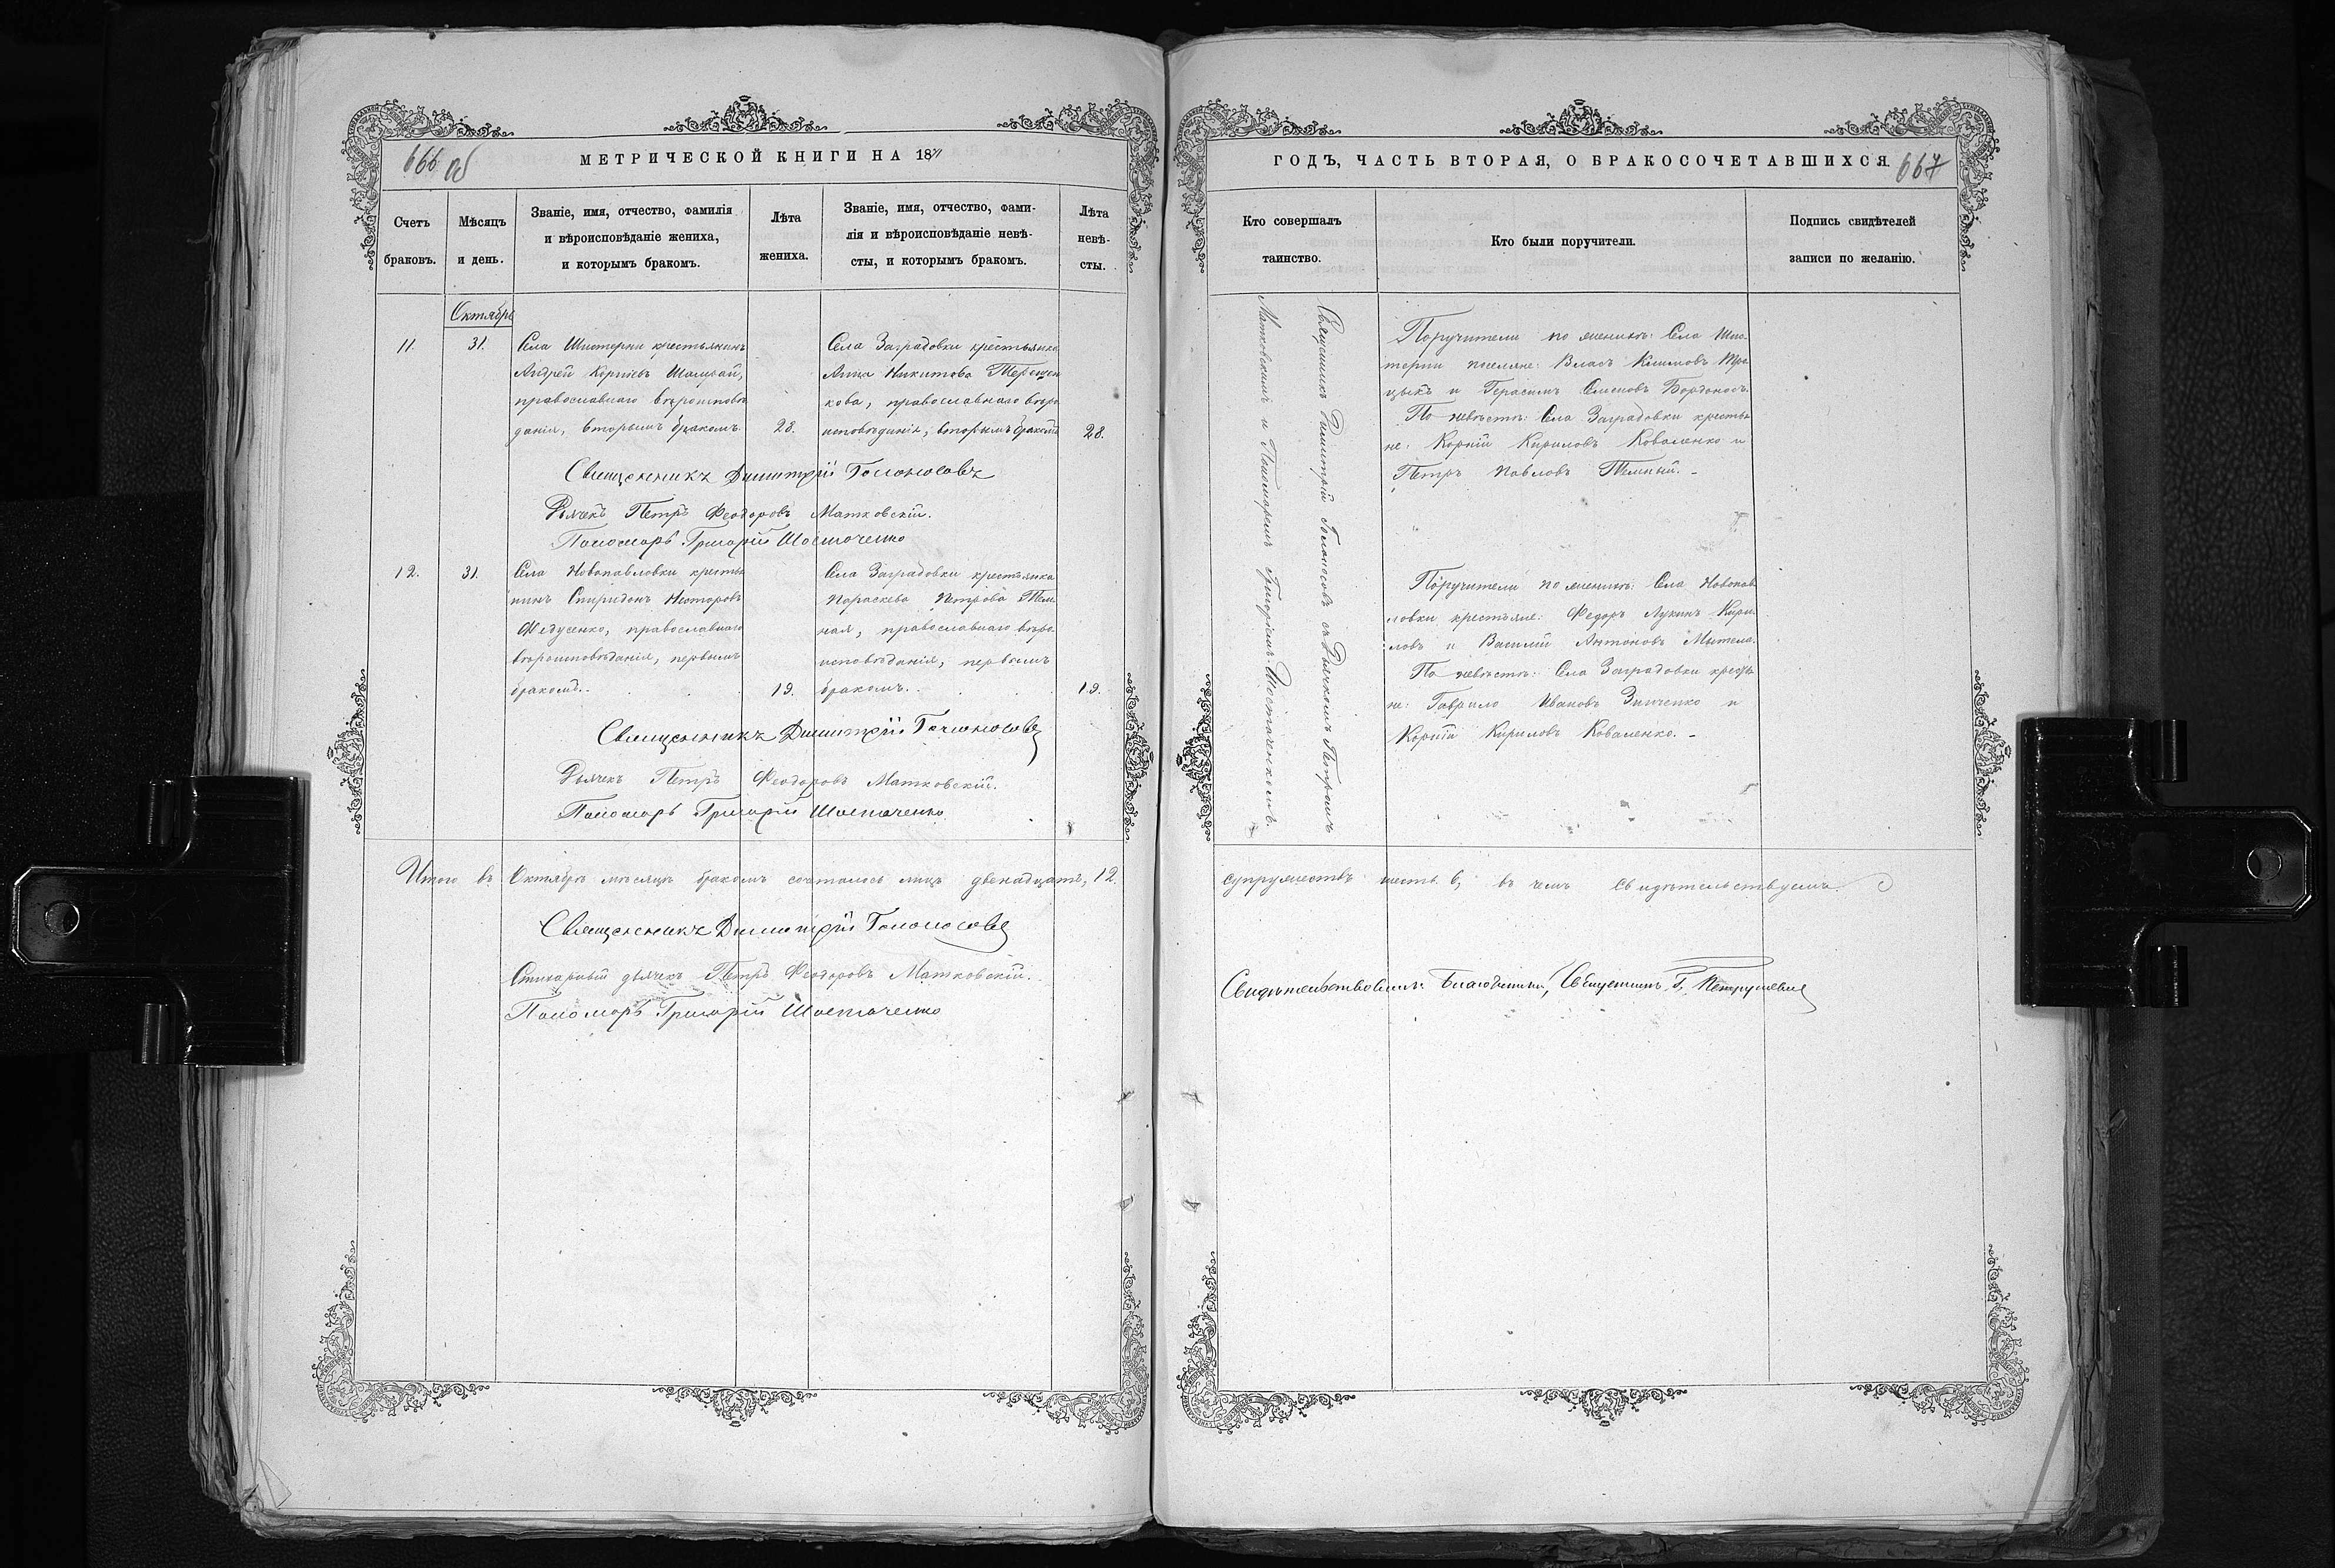 666 об
МЕТРИЧЕСКОЙ КНИГИ НА 1871
Счетъ браковъ.
Мѣсяцъ и день.
Званіе, имя, отчество, фамилія
и вѣроисповѣданіе жениха,
и которымъ бракомъ.
Лѣта жениха.
Званіе, имя, отчество, фами-
лія и вѣроисповѣданіе невѣ-
сты, и которымъ бракомъ.
Лѣта невѣ-
сты.
Октябрь
11.
31.
Села Шестерни крестьянинъ
Андрей Корніевъ
православнаго вѣроисповѣ
данія, вторымъ бракомъ.
28.
Села Заградовки крестьянка
Анна Никитова Терещен
кова, православнаго вѣро
исповѣданія, вторымъ бракомъ
28.
Священникъ Димитрій Голоносовъ
Дьячекъ Петръ Феодоровъ Матковскій.
Пономарь Григорій Шостаченко
12.
31.
Села Новопавловки крестья
нинъ Спиридонъ Несторовъ
Федусенко, православнаго
вѣроисповѣданія, первымъ
бракомъ.
19.
Села Заградовки крестьянка
Параскева Петрова Тем
ная, православнаго вѣро
исповѣданія, первымъ
бракомъ.
19.
Священникъ Димитрій Голоносовъ
Дьячекъ Петръ Феодоровъ Матковскій.
Пономарь Григорій Шостаченко
Итого въ Октябрѣ мѣсяцѣ бракомъ сочталось лицъ двенадцать, 12.
Священникъ Димитрій Голоносовъ
Стихарный дьячекъ Петръ Феодоровъ Матковскій.
Пономарь Григорій Шостаченко
ГОДЪ, ЧАСТЬ ВТОРАЯ, О БРАКОСОЧЕТАВШИХСЯ.
667
Кто совершалъ
таинство.
Кто были поручители.
Подпись свидѣтелей
записи по желанію.
Священникъ Димитрій Голоносовъ съ Дьячкомъ Петромъ
Матковскимъ и Пономаремъ Григоріемъ Шостаченкомъ.
Поручители по женихѣ: Села Шес
терни поселяне: Власъ Климовъ
и Герасимъ Бордоносъ.
По невѣстѣ: Села Заградовки крестья
не: Корній Кириловъ Коваленко и
Петръ Павловъ Темный. -
Поручители по женихѣ: Села Новопав
ловки крестьяне: Федоръ Лукинъ Кири
ловъ и Василій Антоновъ
По невѣстѣ: Села Заградовки крестья
не: Гаврило Ивановъ Зинченко и
Корній Кириловъ Коваленко. -
супружествъ шесть 6, въ чемъ свидѣтельствуемъ.
Свидѣтельствовалъ: Благочинный, Священникъ Г. Петрушевскій